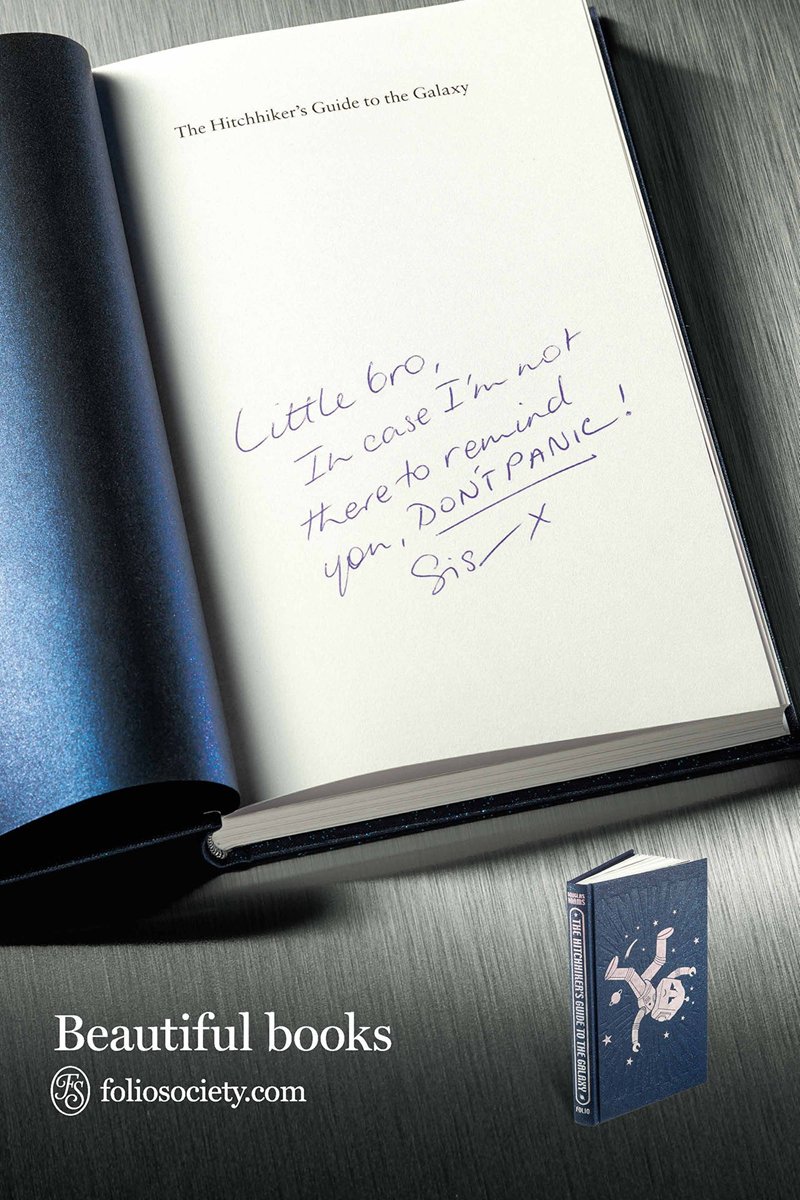 The Hitchhiker's Guide to the Galaxy
Little bro,
In case I'm not
there to remind
you, DON'T PANIC!
Sis x
DOUGLAS
ADAMS
THE HITCHHIKER'S GUIDE TO THE GALAXY
FOLIO
Beautiful books
FS foliosociety.com